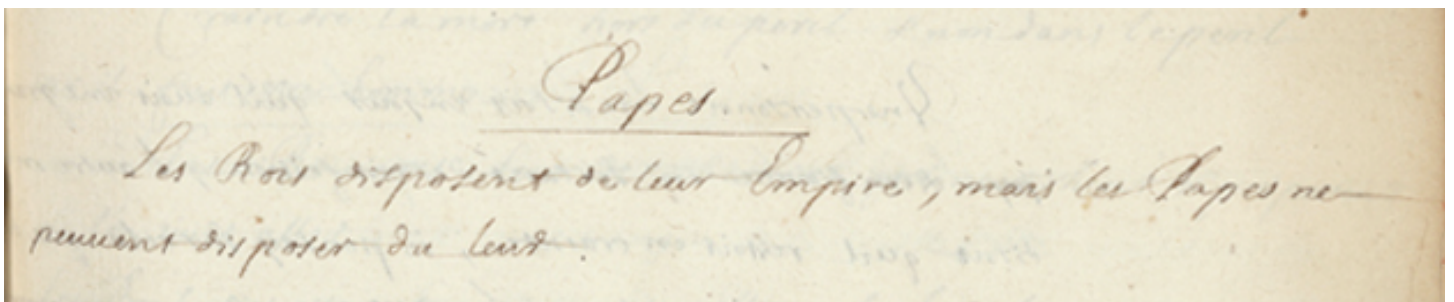 Papes.
Les Rois disposent de leur Empire, mais les Papes ne
peuvent disposer du leur.